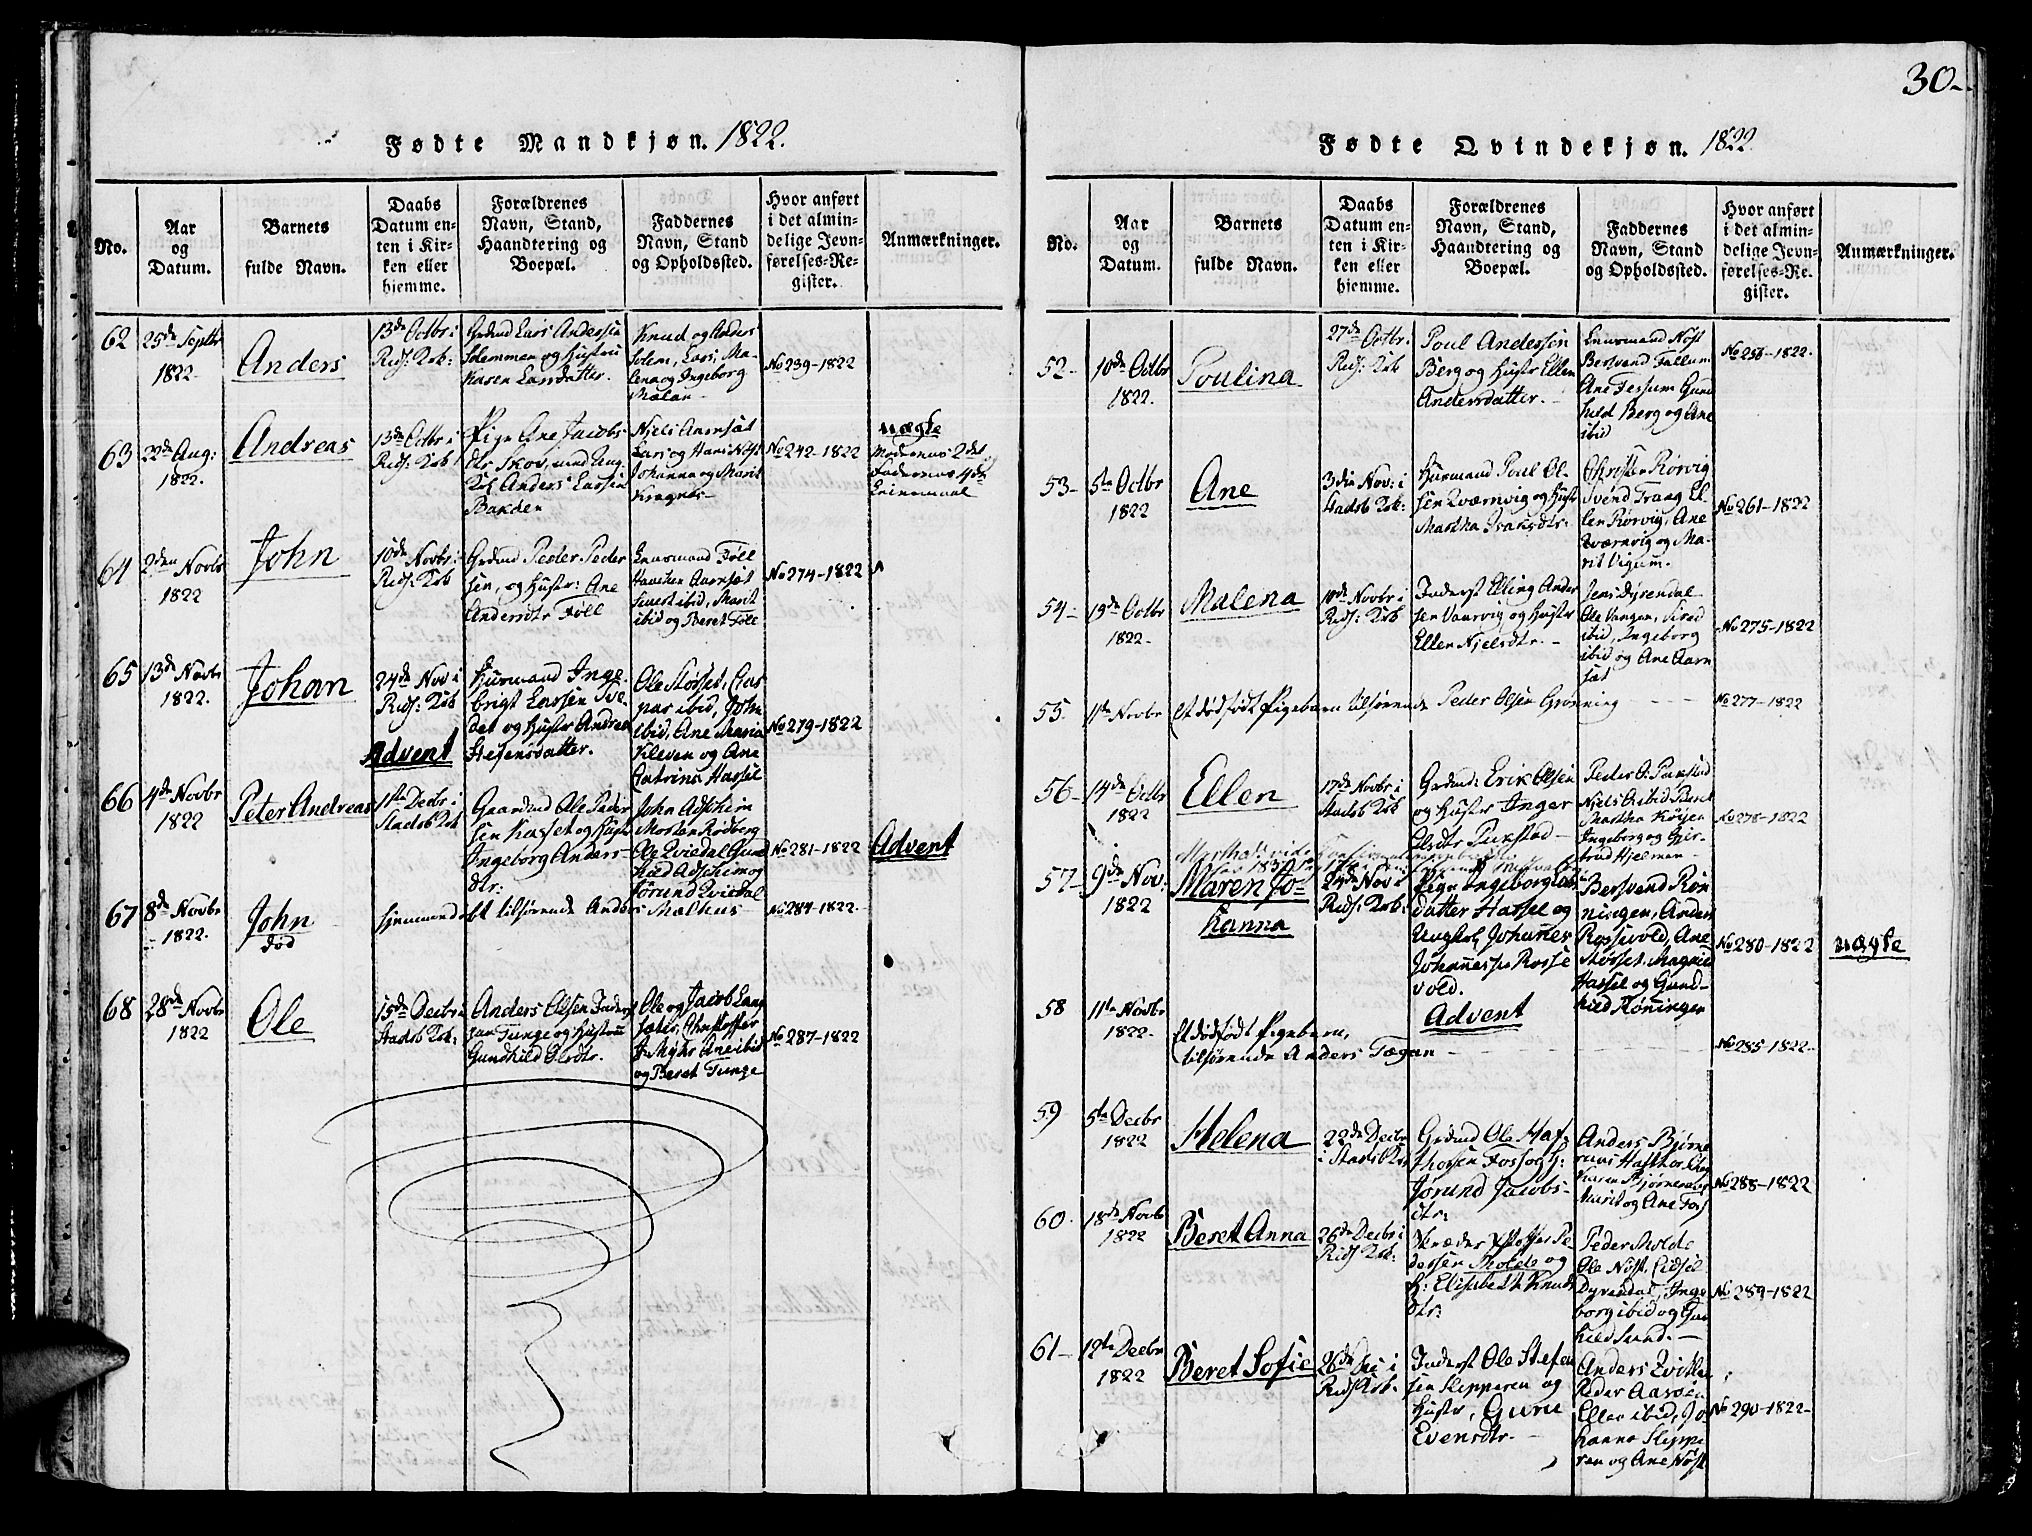 30.
Fødte Mandkjøn. 1822.
No.
Aar
og
Datum.
Barnets
fulde Navn.
Daabs
Datum en-
ten i Kir-
ken eller
hjemme.
Forældrenes
Navn, Stand,
Haandtering og
Boepæl.
Faddernes
Navn, Stand
og Opholdssted.
Hvor anført
i det almin-
delige Jevn-
førelses-Re-
gister.
Anmærkninger.
62
25de Septbr
1822
Anders
13de Octbr i
Grdmd Lars Anderssen
Solemmen og Hustru
Karen Larsdatter.
Knud og Anders
Solem, Lars, Ma-
lena og Ingeborg
No 239-1822
63
22de Aug:
1822.
Andreas
13de Octbr i
Pige Ane Jacobs-
dtr Skov, med Ung-
Anders Larssen
Bakken
Niels Aarnsæt
Johanna og Marit
No 242-1822
uægte
Moderens 2det
Faderens 4de
Leiermaal
64
2den Novbr
1822
John
10de Novbr:
Grdmd Peder Peder-
sen, og Hustr: Ane
Andersdtr Föll
Lensmand Föll
ibid, Marit
ibid og Beret Föll
No 274-1822
65
13de Novbr
1822.
Johan
24de Nov i
Huusmand Inge-
brigt Larssen Sve-
det og Hustr Andrea
Stefensdatter.
Ole Stösset, Cas-
par ibid, John
ibid, Ane Maria
Kleven og Ane
Catrina Hassel
No 279-1822
Advent
66
4de Novbr
1822
Peter Andreas
1ste Decbr i
Gaardmd Ole Peder-
sen Kasset og Hustr
Ingeborg Anders-
dtr:
John Adsheim
Morten Rödberg
Ole Qvidal Gun-
hild Adsheim og
Jörund Qvidal
No 281-1822
Advent
67
8de Novbr
1822.
John
død
hjemmedøbt tilhørende Anders Mælhus
No 284-1822.
68
28de Novbr
1822
Ole
15de Decbr i
Anders Olsen Inderst
paa Tunge og Hustru
Gundhild Olsdtr.
Ole og Jacob Lang-
sæter, Christoffer
J: Myhr Ane ibid
og Beret Tunge
No 287-1822
Fødte Qvindekjøn. 1822
No.
Aar
og
Datum.
Barnets
fulde Navn.
Daabs
Datum en-
ten i Kir-
ken eller
hjemme.
Forældrenes
Navn, Stand,
Haandtering og
Boepæl.
Faddernes
Navn, Stand
og Opholdssted.
Hvor anført
i det almin-
delige Jevn-
førelses-Re-
gister.
Anmærkninger.
52
10de Octbr
1822.
Poulina
27de Octbr:
Poul Anderssen
Berg og Hustr Ellen
Andersdatter.
Lensmand Nöst
Ane Fessum Gun-
hild Berg og Ane
ibid
No 256-1822.
53
5te Octbr
1822
Ane
3die Nov: i
Huusmand Poul Ol-
sen Qværnvig og Hustr
Martha Isaksdtr:
Christen Rörvig
Svend Traag El-
len Rörvig, Ane
Qværnvig og Ma-
rit Vigum.
No 261-1822
54
13de Octbr
1822.
Malena
10de Novbr i
Inderst Elling Ander-
sen Vaarvig og Hustr
Ellen Nielsdtr.
Jens Dyrendal
Ole Vangen, Sived
ibid, Ingeborg
ibid og Ane Aarn-
sæt
No 275-1822
55.
11te Novbr
Et dödfödt Pigebarn tilhörende Peder Olsen Grönning
No 277-1822
56
14de Octbr
1822
Ellen
17de Novbr i
Grdmd: Erik Olsen
og Hustr Inger
Olsdtr Pukstad
Peder O: Pukstad
Niels O: ibid Beret
Ingeborg og Gjer-
trud Hjelmen
No 278-1822
57
9de Nov:
1822
Maren Jo-
hanna
24de Nov i
Pige Ingeborg Lars-
datter Hassel og
Ungkarl Johannes
Johannessen Rosse-
vold.
Bersvend Rön-
ningen, Anders
Rossevold, Ane
Stösset, Magnild
Hassel og Gund-
hild Rönningen
No 280-1822
uægte
Advent
58
11te Novbr
1822.
Et dödfödt Pigebarn,
tilhörende Anders Tægan
No 285-1822
59
5te Decbr
1822
Helena
22de Decbr
Grdmd Ole Haf-
thorsen Foss og H:
Jorund Jacobs-
dtr:
Anders Björne-
Karen Björneraas
Marit og Ane Foss
No 288-1822
60
18de Novbr
1822
Beret Anna
26de Decbr i
Skræder Christoffer Pe-
dersen Molde og
H: Elisabeth Knuds-
dtr:
Peder Molde
Ole Nöst, Eidsil
Dyrendal, Inge-
borg ibid og Gun-
hild Sund.
No 289-1822
61
12te Decbr
1822
Beret Sofie
26de Dec i
Inderst Ole Stefen-
sen Slipperen og
Hustr, Guru
Evensdtr.
Anders Qvikle
Peder Aasoen
Ellen ibid, Jo-
hanna Slippe-
ren og Ane Nöst
No 290-1822